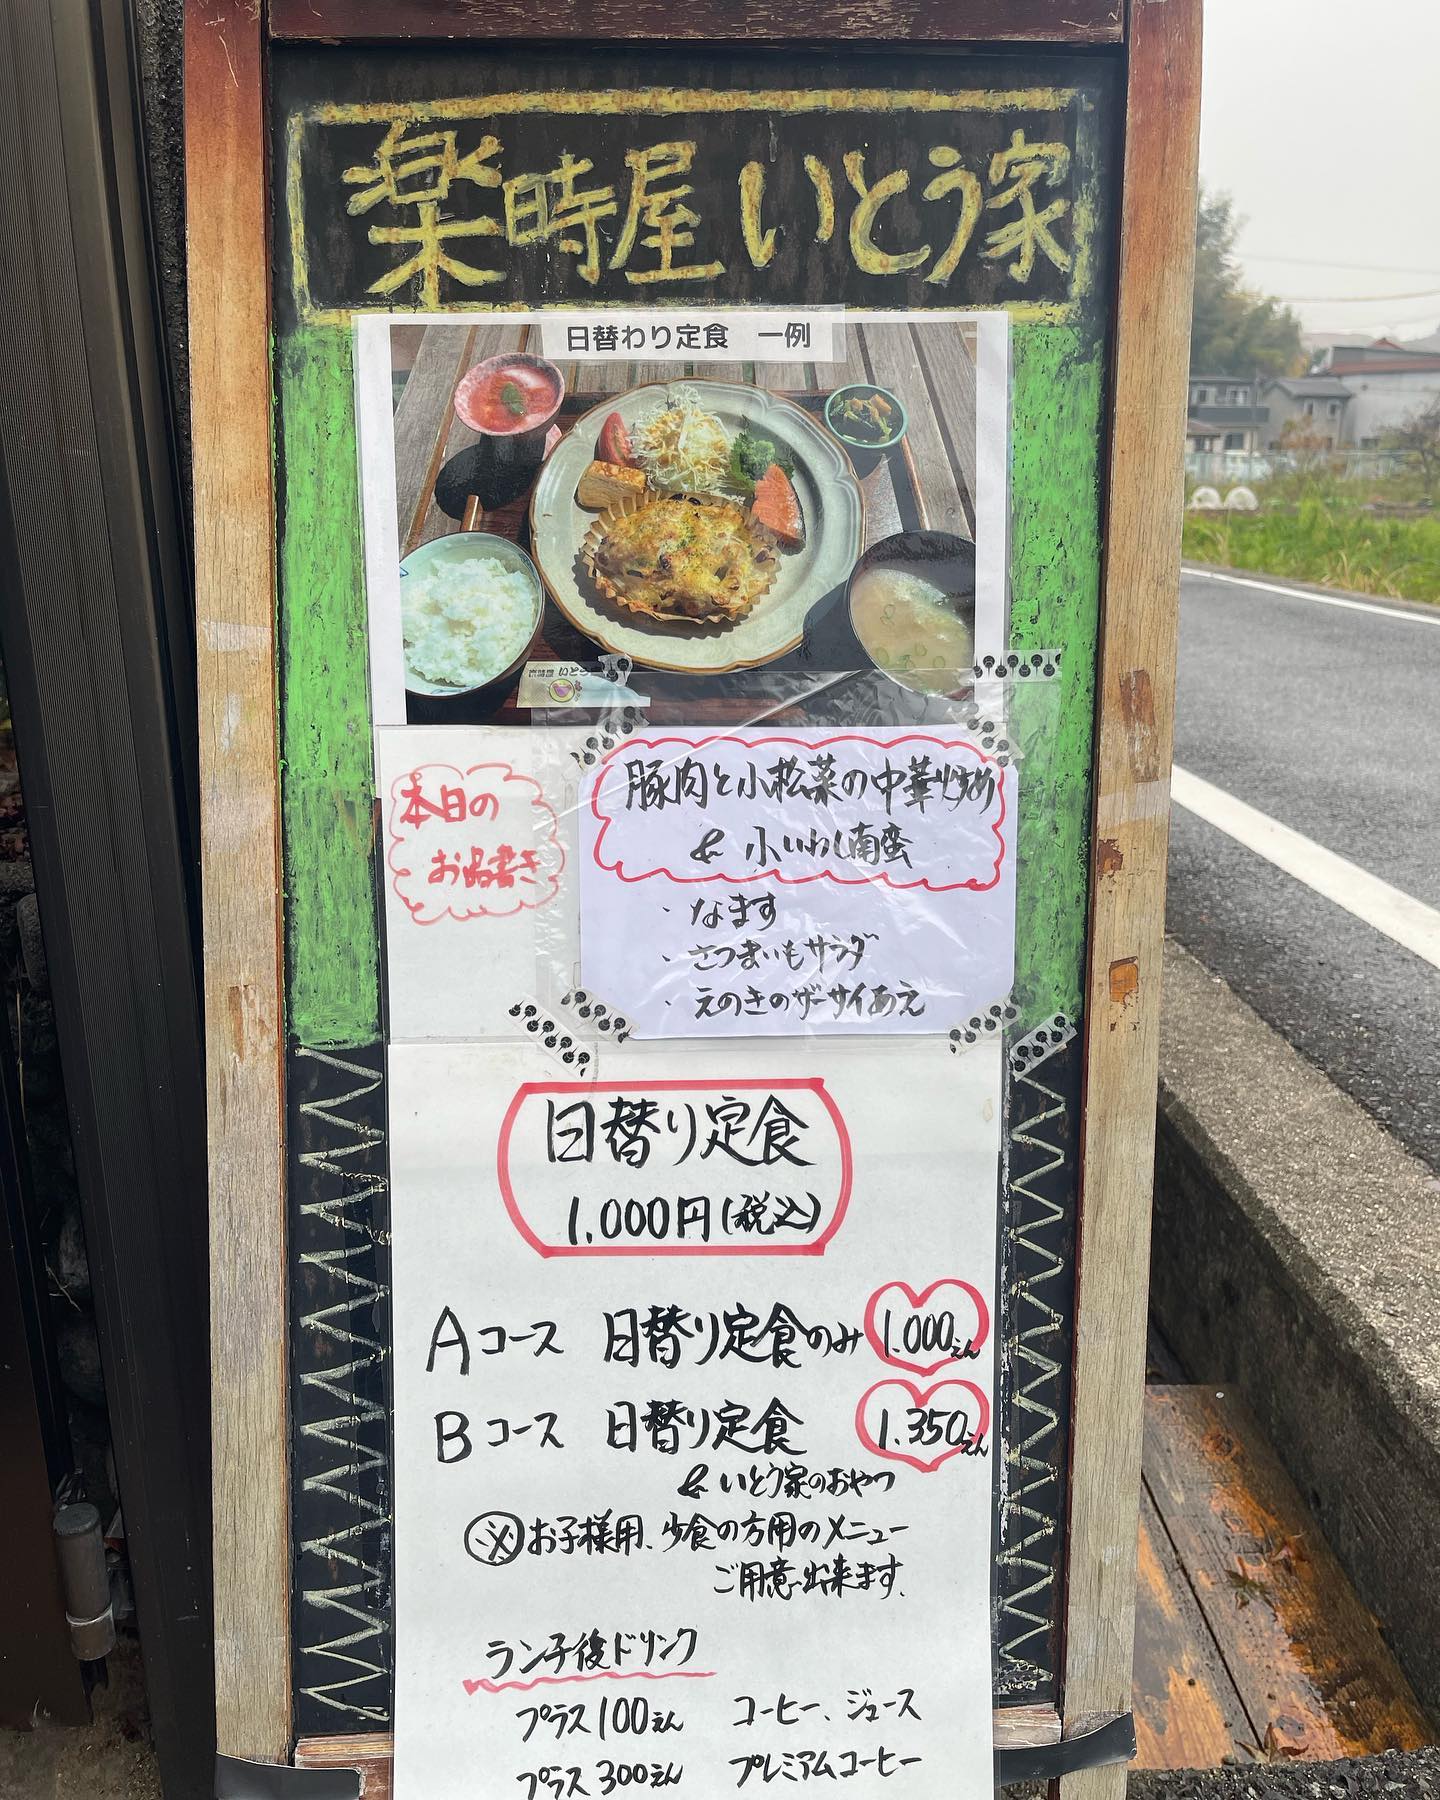 楽時屋 いとう家
日替わり定食 一例
楽時屋 いとう
本日の
お品書き
豚肉と小松菜の中華炒め
& 小いわし南蛮
・なます
・さつまいもサラダ
・えのきのザーサイあえ
日替り定食
1.000円(税込)
Aコース 日替り定食のみ 1.000えん
Bコース 日替り定食 1.350えん
& いとう家のおやつ
※お子様用、少食の方用のメニュー
ご用意出来ます。
ランチ後ドリンク
プラス100えん コーヒー、ジュース
プラス300えん プレミアムコーヒー